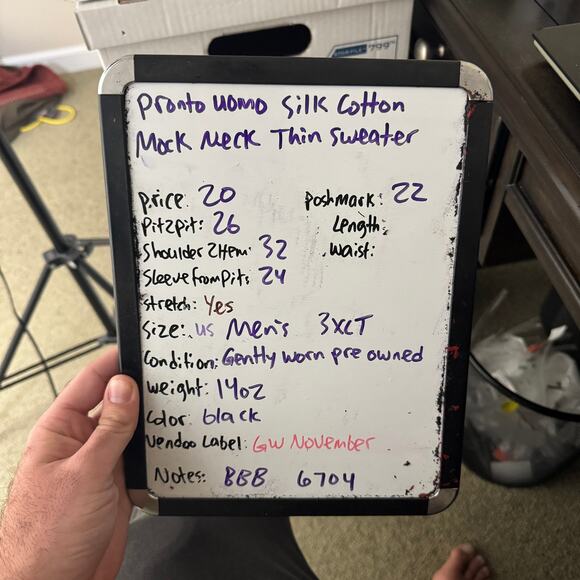 Pronto uomo Silk Cotton
Mock Neck Thin Sweater
price: 20 poshmark: 22
Pit2pit: 26 Length:
Shoulder 2 Hem: 32 Waist:
Sleeve from Pit: 24
Stretch: Yes
Size: US Men's 3XLT
Condition: Gently worn pre owned
weight: 14oz
Color: black
Vendoo Label: GW November
Notes: BBB 6704